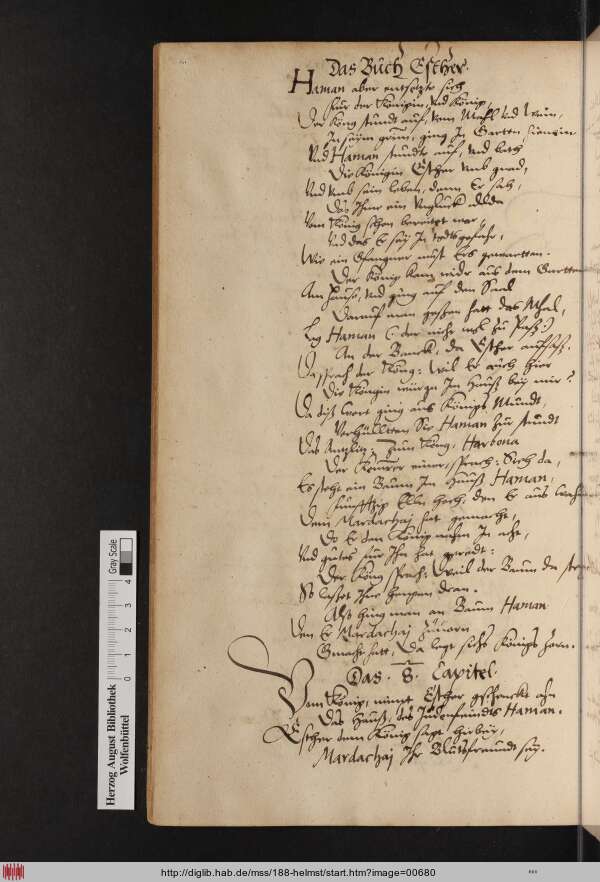 Das Buch Esther.
Haman aber entsetzte sich
Fur der Königin, vnd König,
Der König stundt auf, vom Mahl vnd Wein,
In seim grim, ging In Gartten hienein
Vnd Haman stundt auf, vnd bath
Die Königin Esther vmb gnad,
Vnd vmb sein leben, denn Er sah,
Das Ihme ein Vngluck
Vom König schon bereitet war,
Vnd das Er sey In todts gefahr,
Wie ein Gfangner must Ers gewartten.
Der König kam widr aus dem Gartten
Am Hauß, vnd ging auf den Saal
Darauf man geßen hatt das Mhal,
Lag Haman (: der nicht wol zu Paß :)
An der Banck, da Esther aufsaß.
Da sprach der König: Wil Er auch hier
Die Königin würgn Im Hauß bey mir?
Da diß Wort ging aus Königs Mundt,
Verhülltten Sie Haman zur stundt
Das Antzlitz, zum König, Harbona
Der Kämmrer einer, sprach: Sieh da,
Es steht ein Baum Im Hauß Haman,
Funfftzig Elln hoch, den Er aus
Dem Mardachaj hat gemacht,
Do Er den König nahm In acht,
Vnd gutes für Ihn hat geredt:
Der König sprach: Weil der Baum da
So laßet Ihne hengen dran.
Also hing man an Baum Haman
Den Er Mardachaj zuuorn
Gemacht hatt, Da legt sichs Königs Zorn.
Das. 8. Capitel.
Vom König, nimpt Esther geschencke ahn
Das Hauß, des Judenfeindts Haman.
Esther dem König sagt hierbey,
Mardachaj Ihr Blutsfreundt sey.
Herzog August Bibliothek
Wolfenbüttel
0 1 2 3 4
Gray Scale
http://diglib.hab.de/mss/188-helmst/start.htm?image=00680